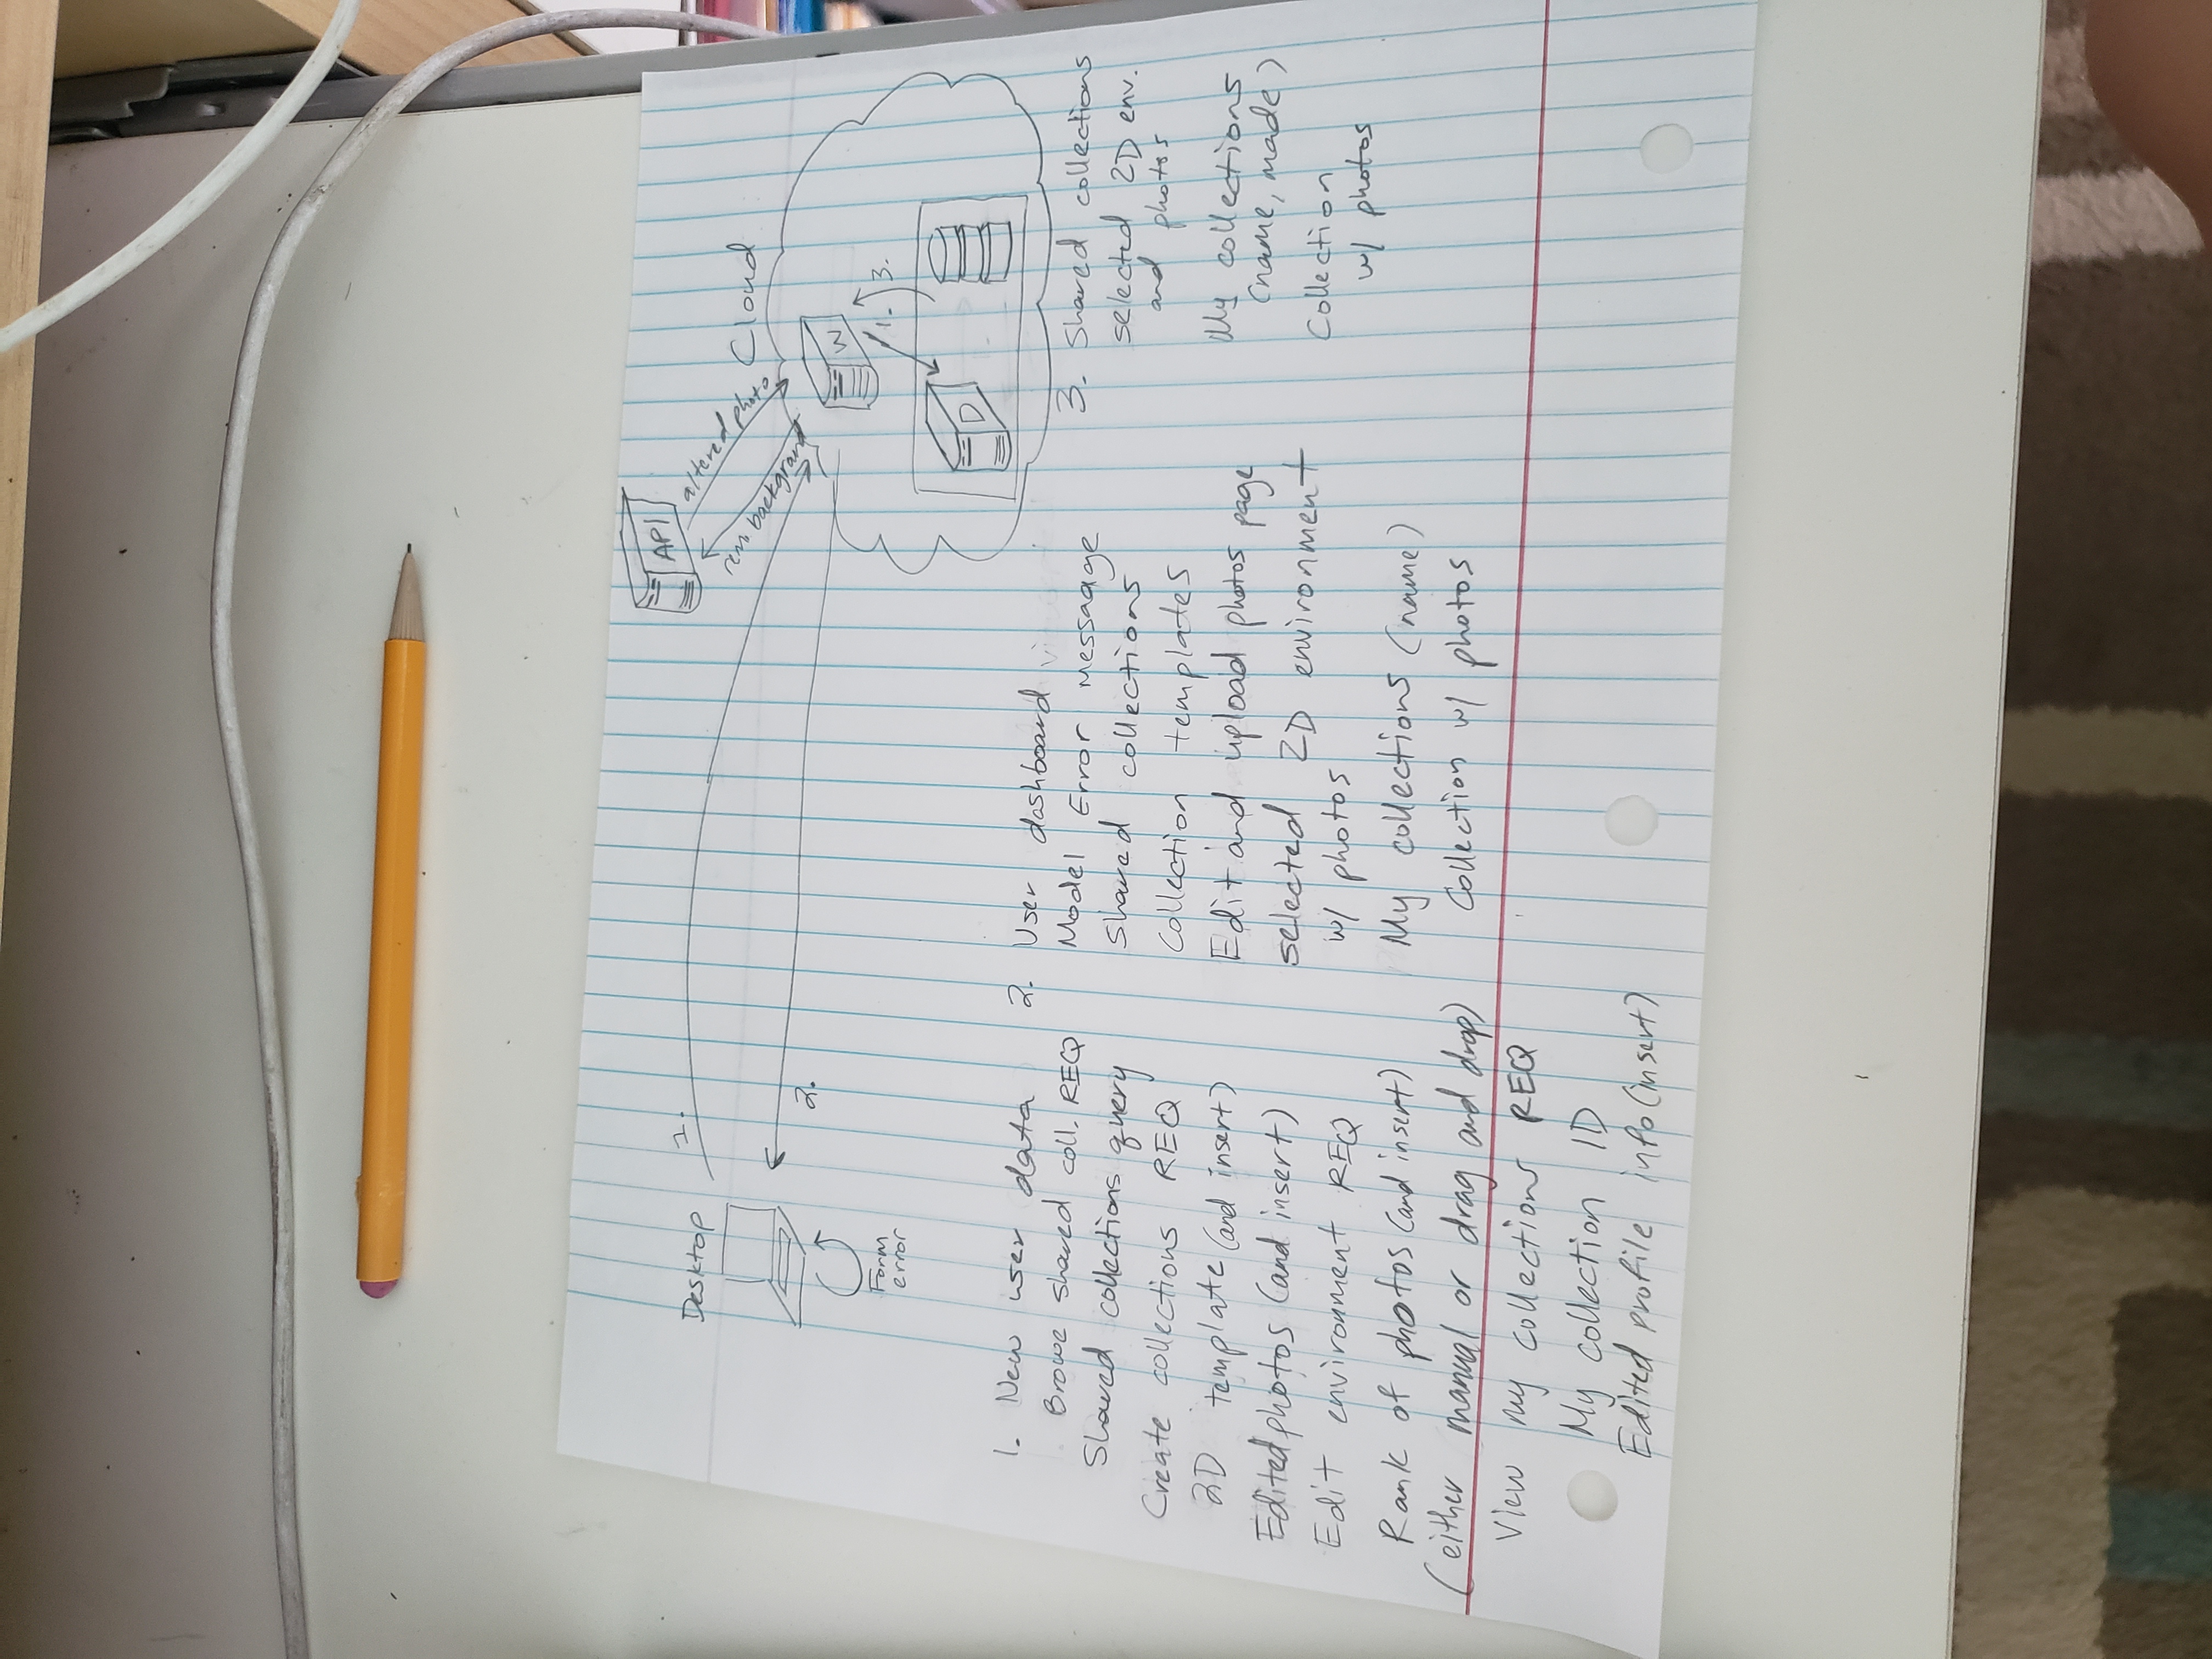 API
Desktop
1.
altered photo
rem. background
Cloud
2.
W
Form
error
1.
3.
D
1. New user data
Browe shared coll. REQ
Shared collections query
Create collections REQ
2D template (and insert)
Edited photos (and insert)
Edit environment REQ
Rank of photos (and insert)
(either manual or drag and drop)
View my collections REQ
My collection ID
Edited profile info (insert)
2. User dashboard
Model Error Messaage
Shared collections
Collection templates
Edit and upload photos page
selected 2D environment
w/ photos
My collections (name)
Collection w/ photos
3. Shared collections
selected 2D env.
and photos
My collections
(name, made)
Collection
w/ photos